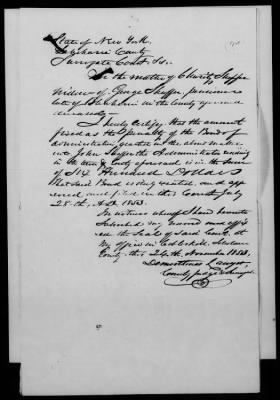 State of New York
Schoharie County
Surrogate Court Ss.
In the matter of Charity Shaffer
Widow of George Shaffer, pensioner
late of in the County aforesaid
deceased
I hereby Certify that the amount
fixed as the penalty of the Bond of
administration granted in the above matter
unto John Shaffer the Administrator residing
in the town & County aforesaid is in the Sum
of Six Hundred Dollars
that said Bond is duly executed, and app
roved and filed in this Court July
28th, A.D. 1853.
In witness whereof I have hereunto
Subscribed my name and affix
ed the Seal of said Court at
my office in Cobleskill, Schoharie
County this 24th November 1853,
Demosthenes Lawyer
County Judge &